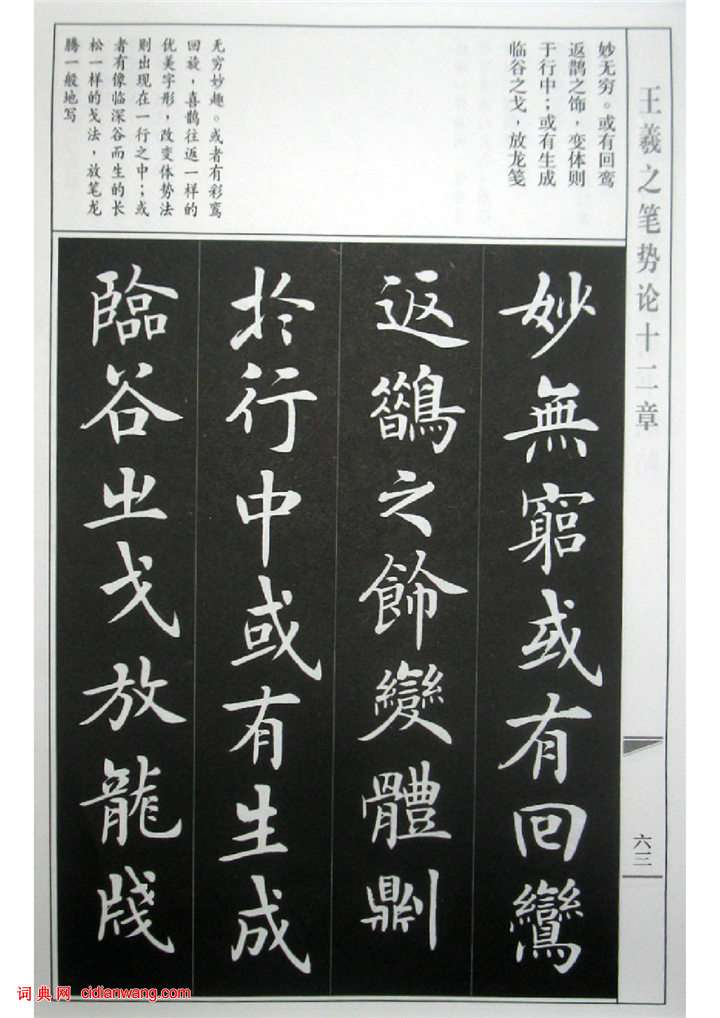 王羲之笔势论十二章
六三
妙无穷。或有回鸾
返鹊之饰，变体则
于行中；或有生成
临谷之戈，放龙笺
无穷妙趣。或者有彩鸾
回旋，喜鹊往返一样的
优美字形，改变体势法
则出现在一行之中；或
者有像临深谷而生的长
松一样的戈法，放笔龙
腾一般地写
妙無窮或有回鸞
返鵲之飾變體則
於行中或有生成
臨谷之戈放龍牋
词典网 cidianwang.com